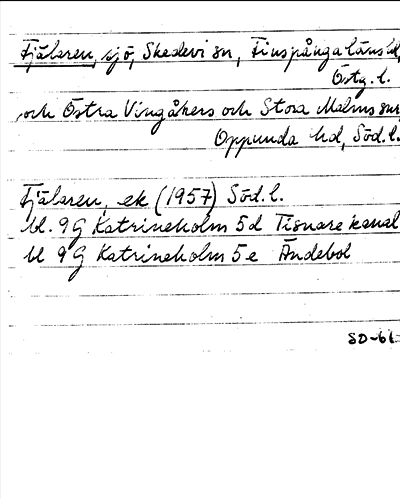 Fjälaren, sjö, Skedevi sn, Finspånga läns hd,
Östg. l.
och Östra Vingåkers och Stora Malms snr
Oppunda hd, Söd. l.
Fjälaren, ek (1957) Söd. l.
bl. 9G Katrineholm 5d Tisnare kanal
bl 9G Katrineholm 5e Ändebol
SD-61